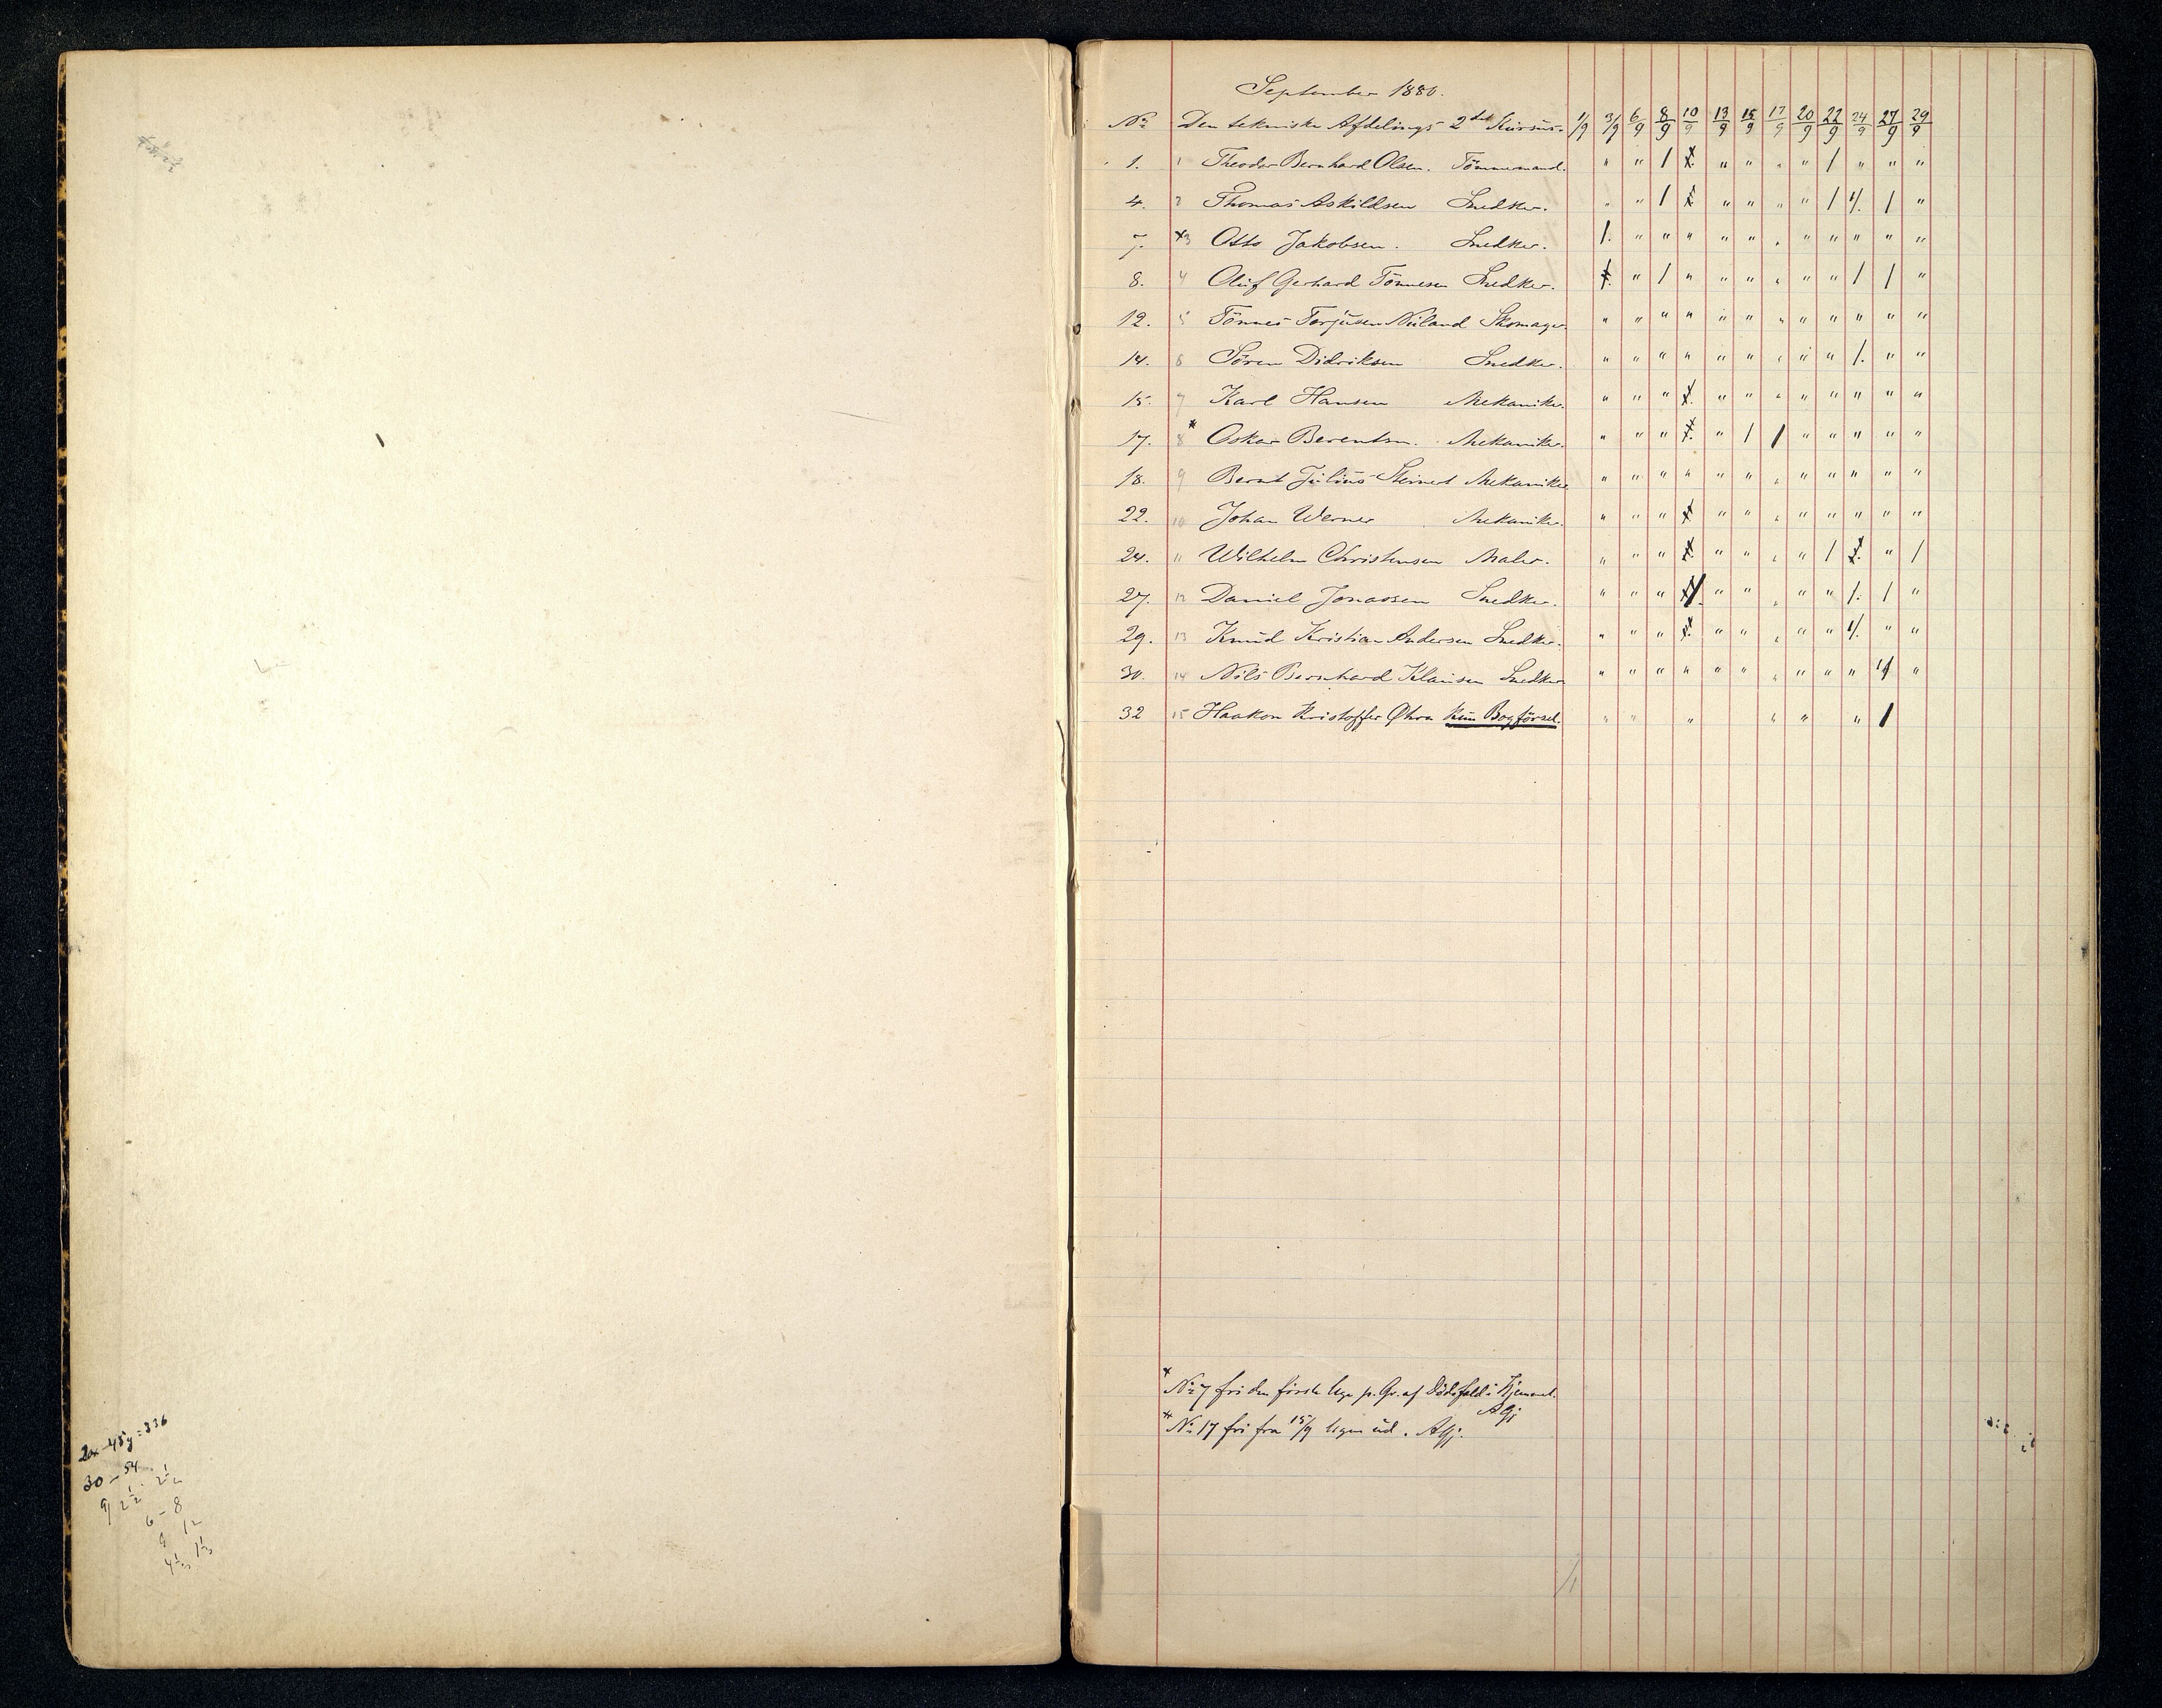 September 1880.
No Den tekniske Afdelings 2det Kursus. 1/9 3/9 6/9 8/9 10/9 13/9 15/9 17/9 20/9 22/9 24/9 27/9 29/9
1. 1 Theodor Bernhard Olsen. Tömmermand. " " / " " " " / " " "
4. 2 Thomas Askildsen Snedker. " " / " " " " / /. / "
7. x3 Otto Jakobsen. Snedker. /. " " " " " " " " " " "
8. 4 Oluf Gerhard Tönnesen Snedker. " / " " " " " " / / "
12. 5 Tönnes Terjusen Nuland Skomager " " " " " " " " " " " "
14. 6 Sören Didriksen Snedker. " " " " " " " " " /. " "
15. 7 Karl Hansen Mekaniker. " " " " " " " " " " "
17. 8 * Oskar Berentsen. Mekaniker. " " " " / / " " " " "
18. 9 Bernt Julius Steinert Mekaniker " " " " " " " " " " " "
22. 10 Johan Werner Mekaniker. " " " " " " " " " " "
24. 11 Wilhelm Christensen Maler. " " " " " " " / " /
27. 12 Daniel Jonassen Snedker. " " " " " " " " /. / "
29. 13 Knud Kristian Andersen Snedker. " " " " " " " " /. " "
30. 14 Nils Bernhard Klausen Snedker " " " " " " " " " " "
32 15 Haakon Kristoffer Øhra Kun Bogförsel. " " " " " " /
* No 7 fri den förste Uge p. Gr. af Dödsfald i Hjemmet.
AGj
* No 17 fri fra 15/9 Ugen ud. AGj.
2x-45y=336
30-54
9/ 2 1/2 . 2 1/2
6-8
9 12
4 1/2 1 1/2